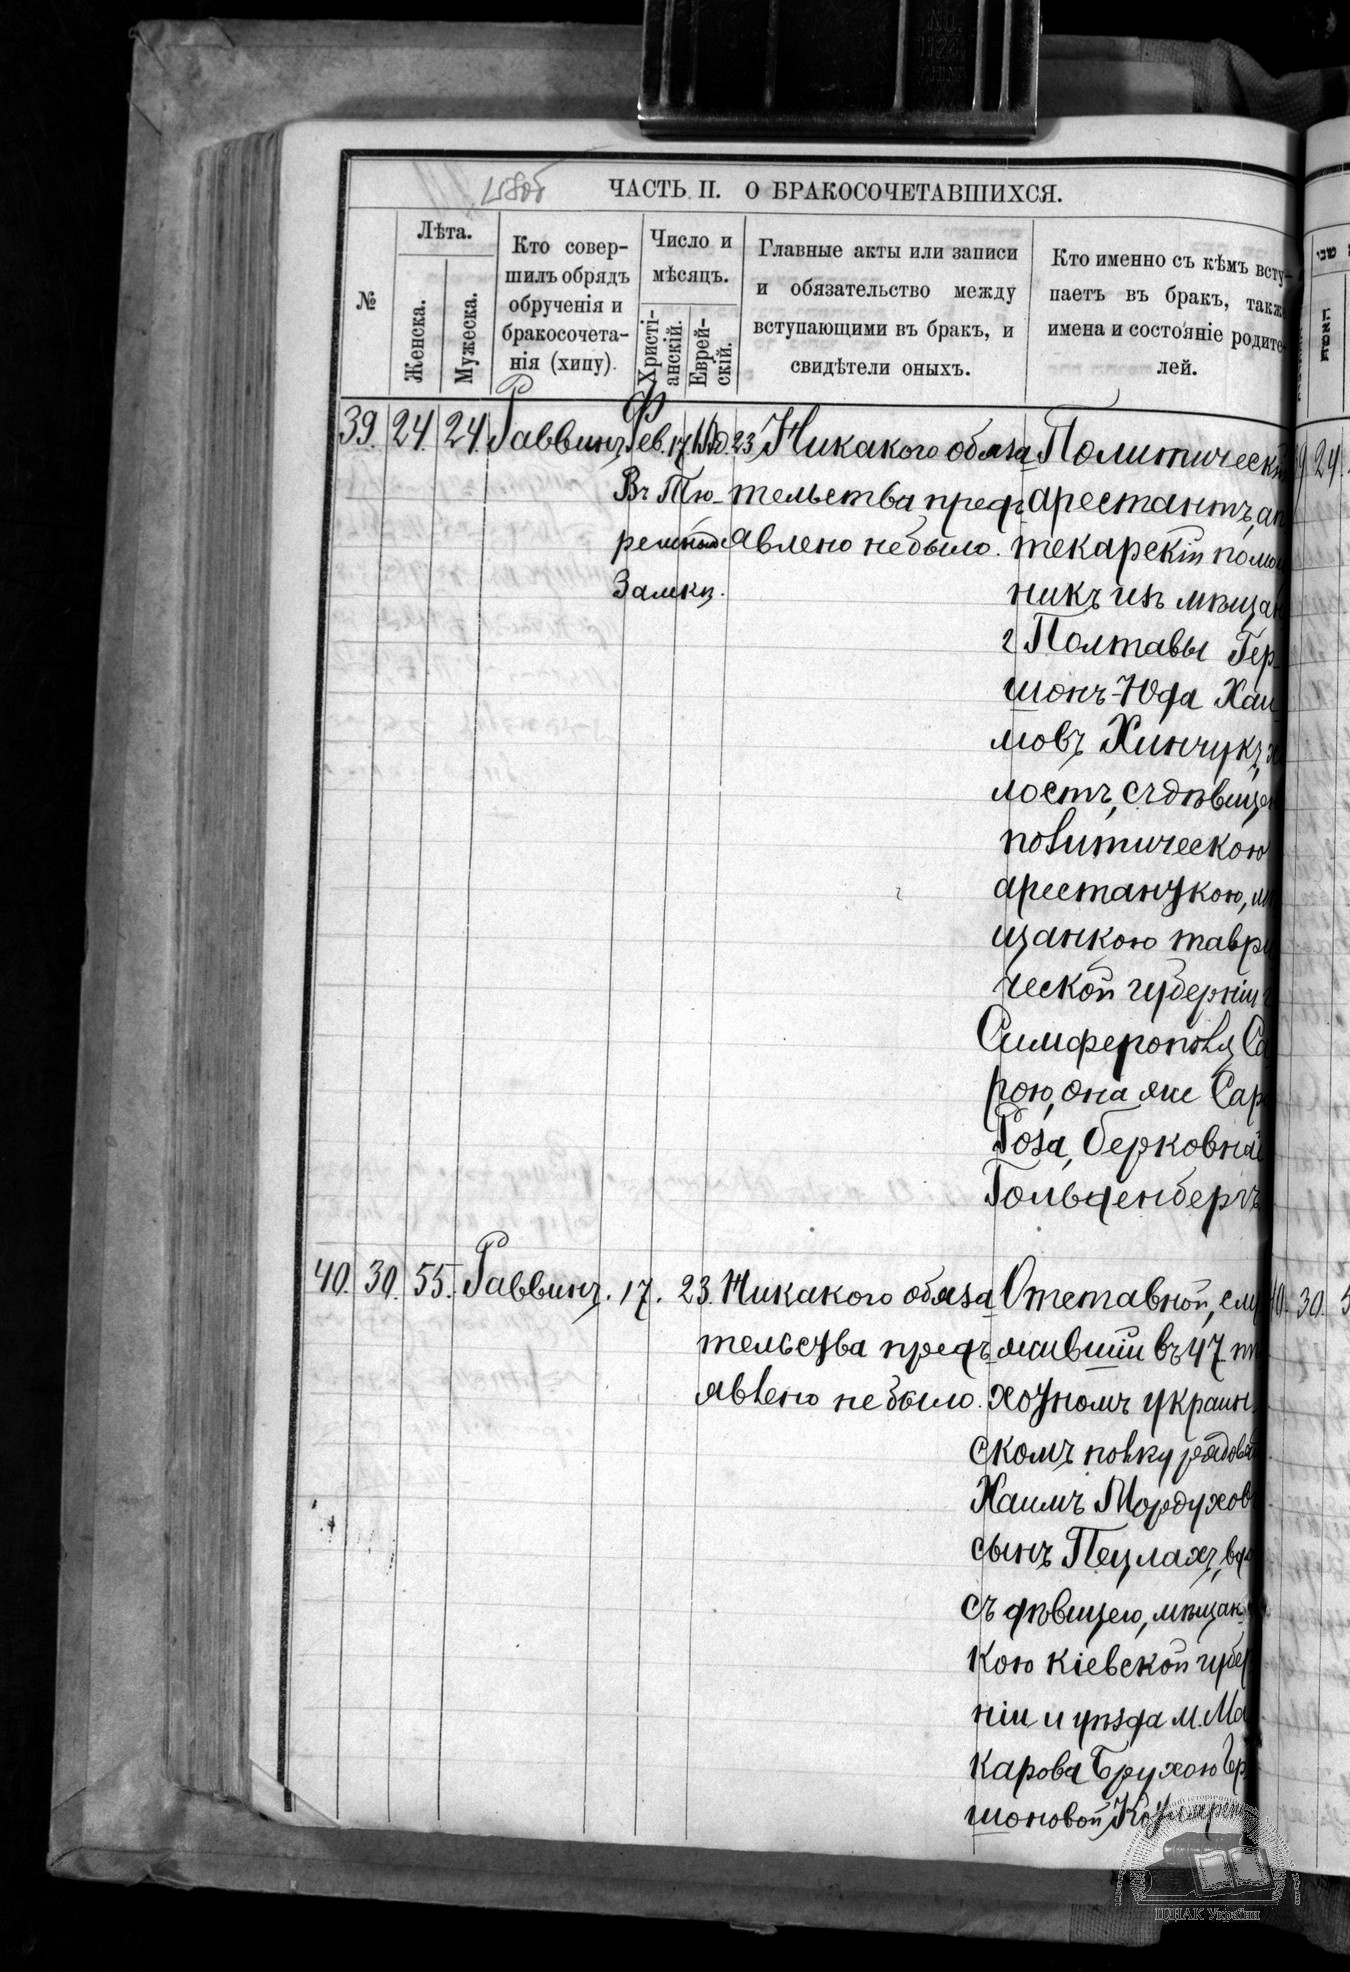 ЧАСТЬ II. О БРАКОСОЧЕТАВШИХСЯ.
№
Лѣта.
Женска.
Мужеска.
Кто совер-
шилъ обрядъ
обрученія и
бракосочета-
нія (хипу).
Число и
мѣсяцъ.
Христі-
анскій.
Еврей-
скій.
Главные акты или записи
и обязательство между
вступающими въ бракъ, и
свидѣтели оныхъ.
Кто именно съ кѣмъ всту-
паетъ въ бракъ, также
имена и состояніе родите-
лей.
39. 24. 24. Раввинъ. Фев. 17. 23.
Въ Тю-
ремномъ
Замкѣ.
Никакого обяза
тельства предъ
явлено не было.
Политическій
арестантъ, ап
текарскій помощ
никъ изъ мѣщан
г Полтавы Гер-
шонъ-Юда Хаи
мовъ Хинчукъ, хо
лостъ, съ дѣвицею
политическою
арестанткою, мѣ
щанкою таври
ческой губерніи г
Симферополя Са
рою, она же Сара
Роза, берковна
Гольденбергъ
40. 30. 55. Раввинъ. 17. 23.
Никакого обяза
тельства предъ
явлено не было.
Отставной, слу
жившій въ 47 пѣ
хотномъ украин
скомъ полку рядовой
Хаимъ Мордухов
сынъ Пецлахъ, вдо
съ дѣвицею, мѣщан
кою кіевской губер
ніи и уѣзда м. Ма
карова Брухою Гер
шоновой
39 24.
40. 30. 5
ЦДІАК України